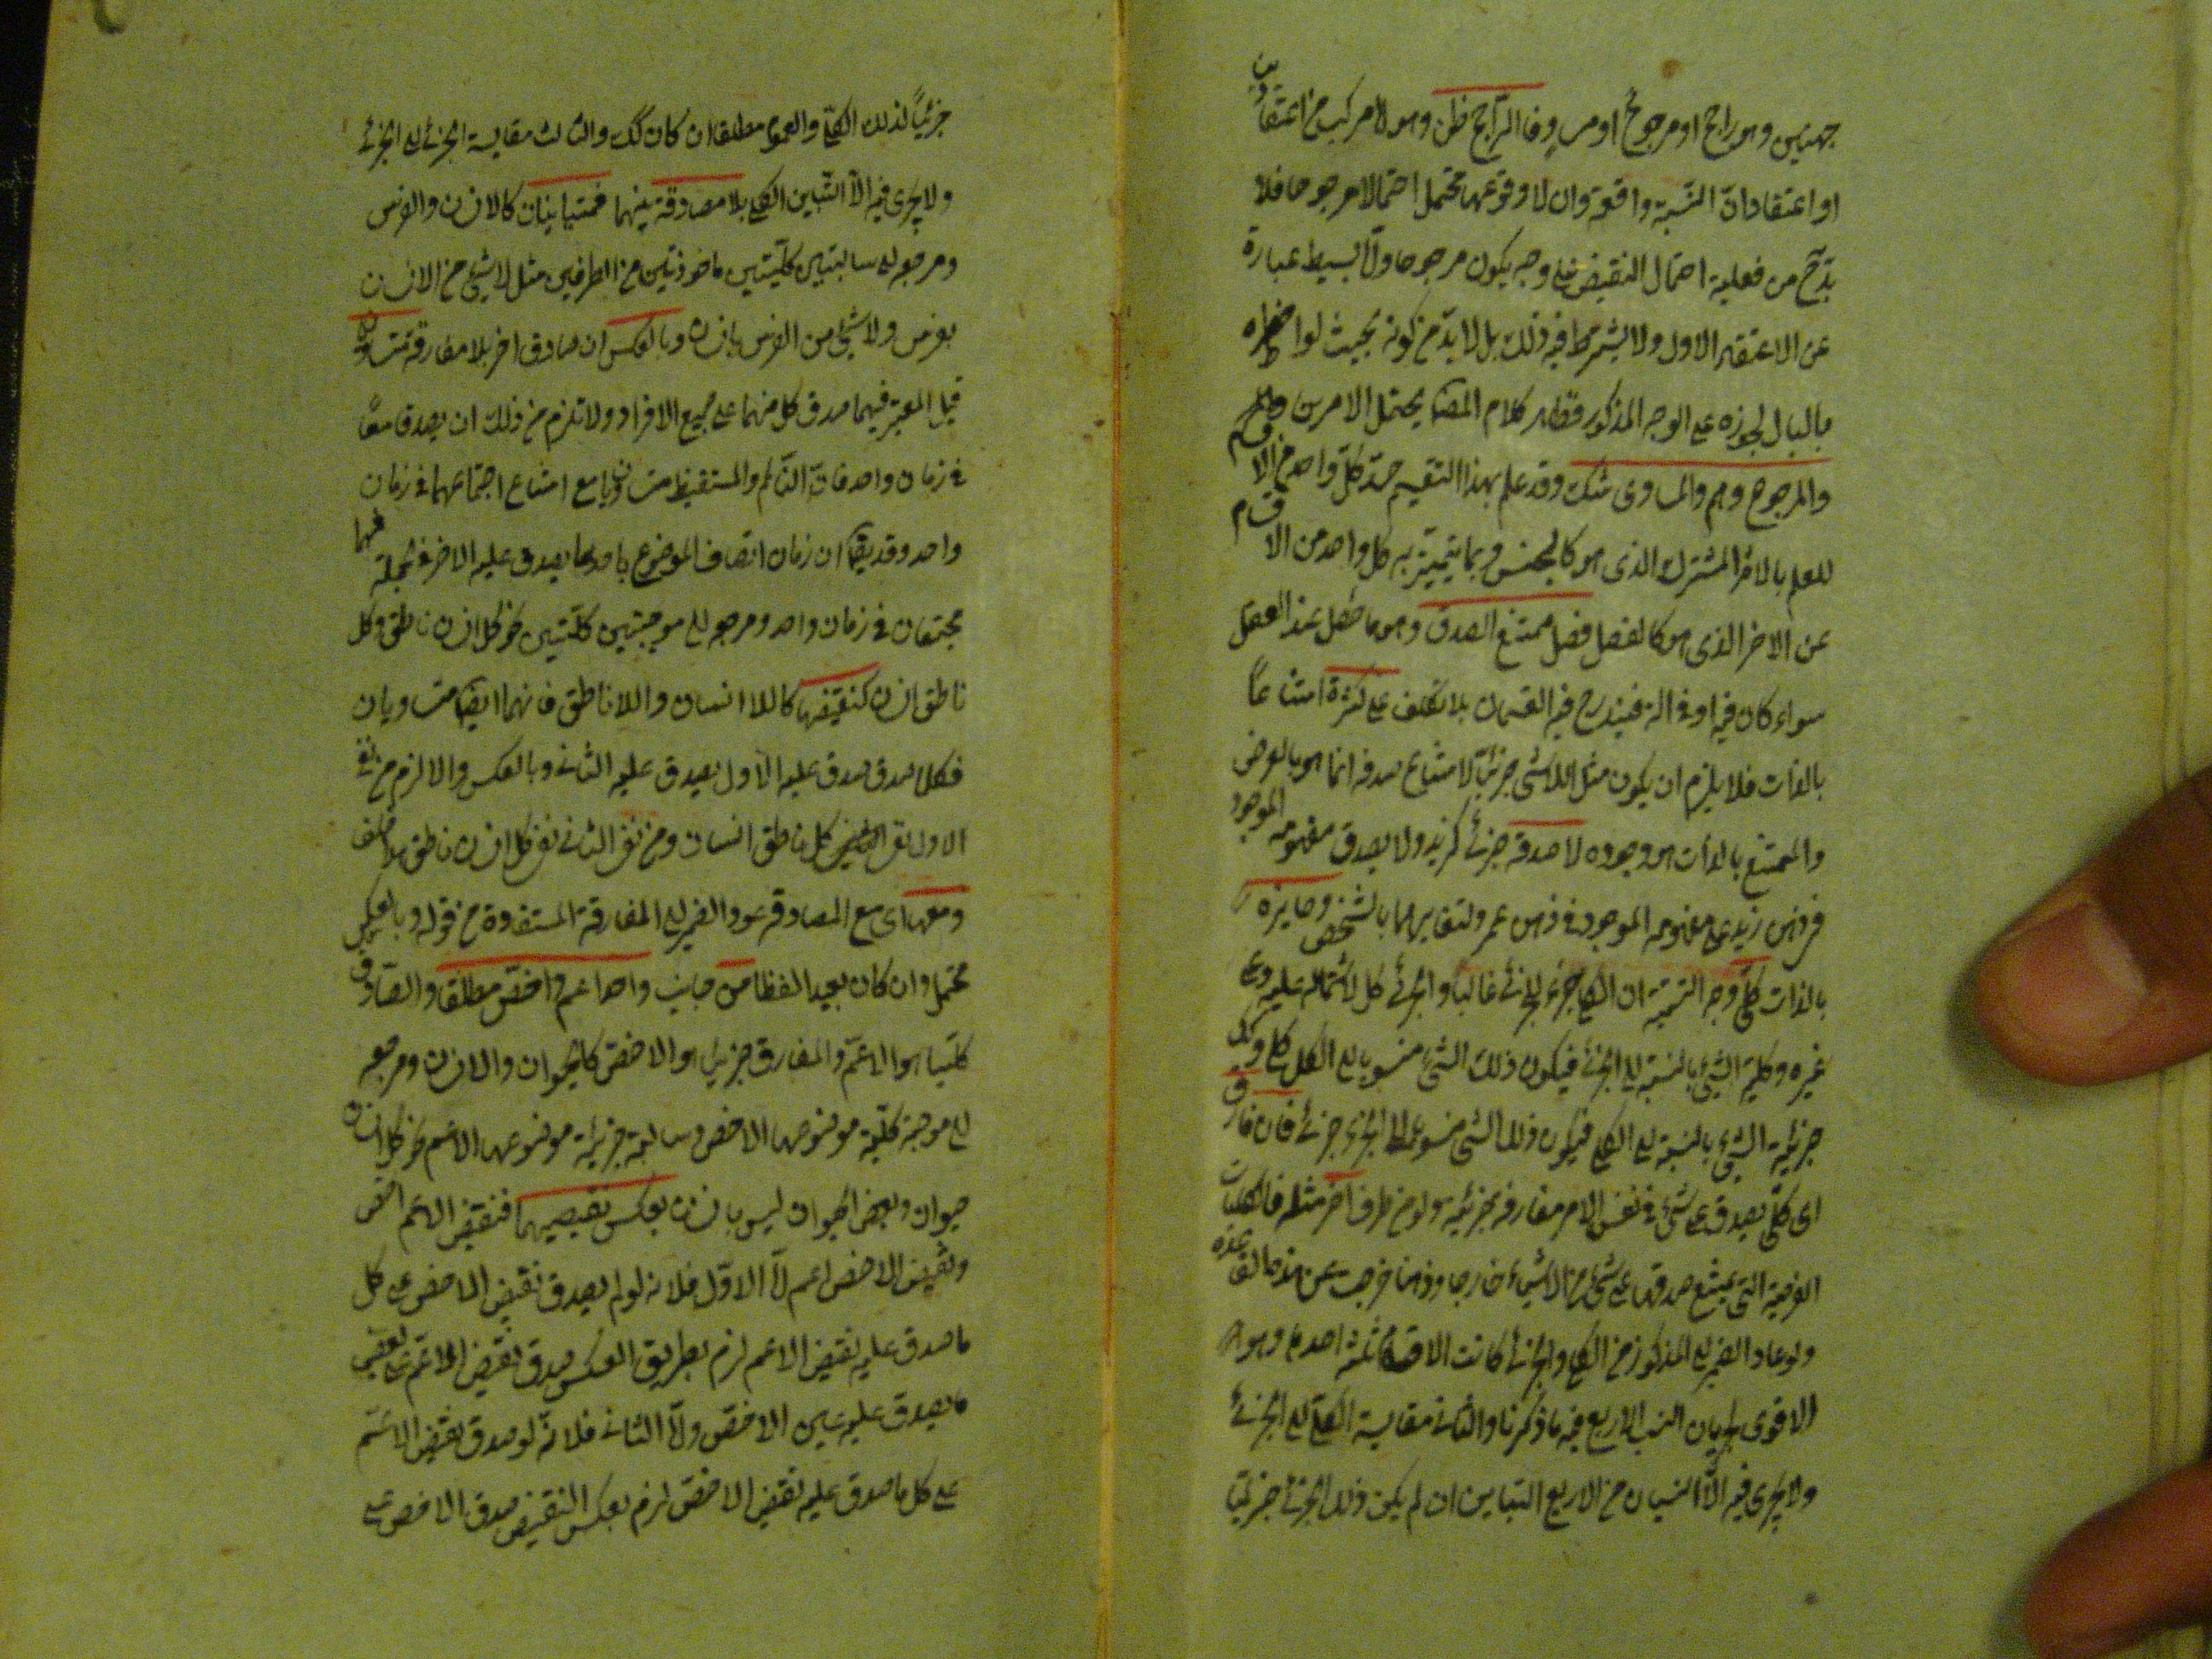 جهتين وهو راجح او مرجوح او مساو فالراجح ظن وهو لامركب من اعتقادين
او اعتقاد ان النسبة واقعة وان لا وقوعها محتمل احتمالا مرجوحا فلا
بد ح من فعلية احتمال النقيض على وجه يكون مرجوحا ولا بسيط عبارة
عن الاعتقاد الاول ولا يشترط فيه ذلك بل لا بد من كونه بحيث لو اخطره
بالبال لجوزه على الوجه المذكور فظاهر كلام المصنف يحتمل الامرين
والمرجوح وهم والمساوى شك وقد علم بهذا التقسيم حد كل واحد من الاقسام
للعلم بالامر المشترك الذى هو كالجنس وبما يتميز به كل واحد من الاقسام
عن الاخر الذى هو كالفصل فصل ممتنع الصدق وهو ما حصل عند العقل
سواء كان فيه او فى الته فيندرج فيه القسمان بلا تكلف على كثرة امتناعاً
بالذات فلا يلزم ان يكون مثل اللاشئ جزئيا لا متناع صدقه انما هو بالعرض
والممتنع بالذات هو وجوده لا صدقه جزئى كزيد ولا يصدق مفهومه الموجود
فى ذهن زيد على مفهومه الموجود فى ذهن عمرو لتغايرهما بالشخص وجايزه
بالذات كلى وجه التسمية ان الكلى جزء للجزئى غالبا والجزئى كل لاشتماله عليه وعلى
غيره وكلية الشئ بالنسبة الى الجزئى فيكون ذلك الشئ منسوبا الى الكل كلى وكك
جزئية الشئ بالنسبة الى الكلى فيكون ذلك الشئ منسوبا الى الجزء جزئى فان فارق
اى كلى يصدق على شئ فى نفس الامر مفارقه بجزئيه ولو من طرف اخر مثله فالكليات
الفرضية التى يمتنع صدقها على شئ من الاشياء خارجا وذهنا خرجت عن هذه القاعدة
ولو عاد الضمير الى المذكور من الكلى والجزئى كانت الاقسام ثلثة احدها وهو
الاقوى لجريان النسب الاربع فيه ما ذكرنا والثانى مقايسة الكلى الى الجزئى
ولا يجرى فيه الا النسبتان من الاربع التباين ان لم يكن ذلك الجزئى جزئيا
جزئياً لذلك الكلى والعموم مطلقا ان كان كك والثالث مقايسة الجزئى الى الجزئى
ولا يجرى فيه الا التباين الكلى بلا مصادقة بينهما فمتباينان كالانسان والفرس
ومرجعه الى سالبتين كليتين ماخوذتين من الطرفين مثل لا شئ من الانسان
بفرس ولا شئ من الفرس بانسان وبالعكس ان صادق اخر بلا مفارقة فمتساويان
قيل المعتبر فيهما صدق كل منهما على جميع الافراد ولا تلزم من ذلك ان يصدقا معًا
فى زمان واحد فان النائم والمستقيظ متساويان مع امتناع اجتماعهما فى زمان
واحد وقد يقال ان زمان اتصاف الموضوع باحدهما يصدق عليه الاخر فى الجملة فهما
يجتمعان فى زمان واحد ومرجعه الى موجبتين كليتين نحو كل انسان ناطق وكل
ناطق انسان كنقيضهما كاللا انسان واللا ناطق فانهما ايضا متساويان
فكلما صدق صدق عليه الاول يصدق عليه الثانى وبالعكس والا لزم من نفى
الاول نفى كل ناطق انسان ومن نفى الثانى نفى كل انسان ناطق هذا خلف
ومعها اى مع المصادقه عود الضمير الى المفارقة المستفادة من قوله وبالعكس
محتمل وان كان بعيدا لفظا من جانب واحد اعم واخص مطلقا والصادق
كليا هو الاعم والمفارق جزئيا هو الاخص كالحيوان والانسان ومرجعه
الى موجبة كلية موضوعها الاخص وسالبة جزئية موضوعها الاعم نحو كل انسان
حيوان وبعض الحيوان ليس بانسان بعكس نقيضيهما فنقيض الاعم اخص
ونقيض الاخص اعم اما الاول فلانه لو لم يصدق نقيض الاخص على كل
ما صدق عليه نقيض الاعم لزم بطريق العكس صدق نقيض الاعم على بعض
ما يصدق عليه عين الاخص واما الثانى فلانه لو صدق نقيض الاعم
على كل ما صدق عليه نقيض الاخص لزم بعكس النقيض صدق الاخص على